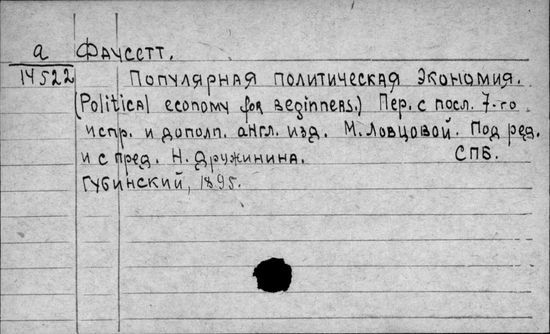 а Фаусетт.
14522
Популярная политическая экономия.
(Political economy for beginners.) Пер. с посл. 7-го
испр. и дополн. англ. изд. М. Ловцовой. Под ред.
и с пред. Н. Дружинина. СПб.
Губинский, 1895.